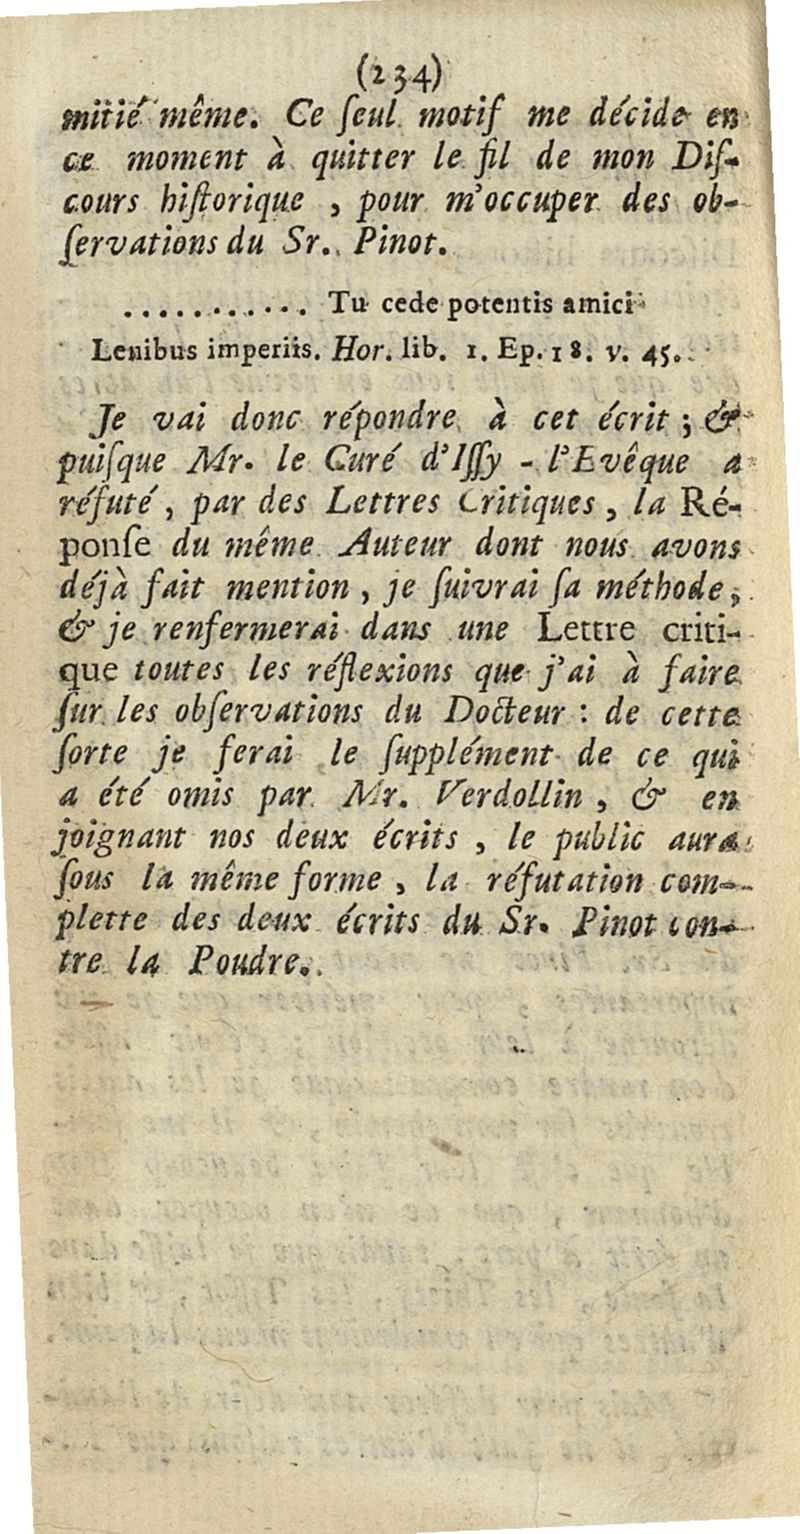 (234)
mitié même. Ce ſeul motif me décide en
ce moment à quitter le fil de mon Diſ-
cours hiſtorique , pour m'occuper des ob-
ſervations du Sr. Pinot.
. . . . . . . . . . . Tu cede potentis amici
Lenibus imperiis. Hor. lib. 1. Ep. 18. v. 45.
Je vai donc répondre à cet écrit ; &
puiſque Mr. le Curé d'Iſſy - l'Evêque a
réfuté , par des Lettres Critiques , la Ré-
ponſe du même Auteur dont nous avons
déjà fait mention , je ſuivrai ſa méthode ,
& je renfermerai dans une Lettre criti-
que toutes les réflexions que j'ai à faire
ſur les obſervations du Docteur : de cette
ſorte je ferai le ſupplément de ce qui
a été omis par Mr. Verdollin , & en
joignant nos deux écrits , le public aura
ſous la même forme , la réfutation com-
plette des deux écrits du Sr. Pinot con-
tre la Poudre.